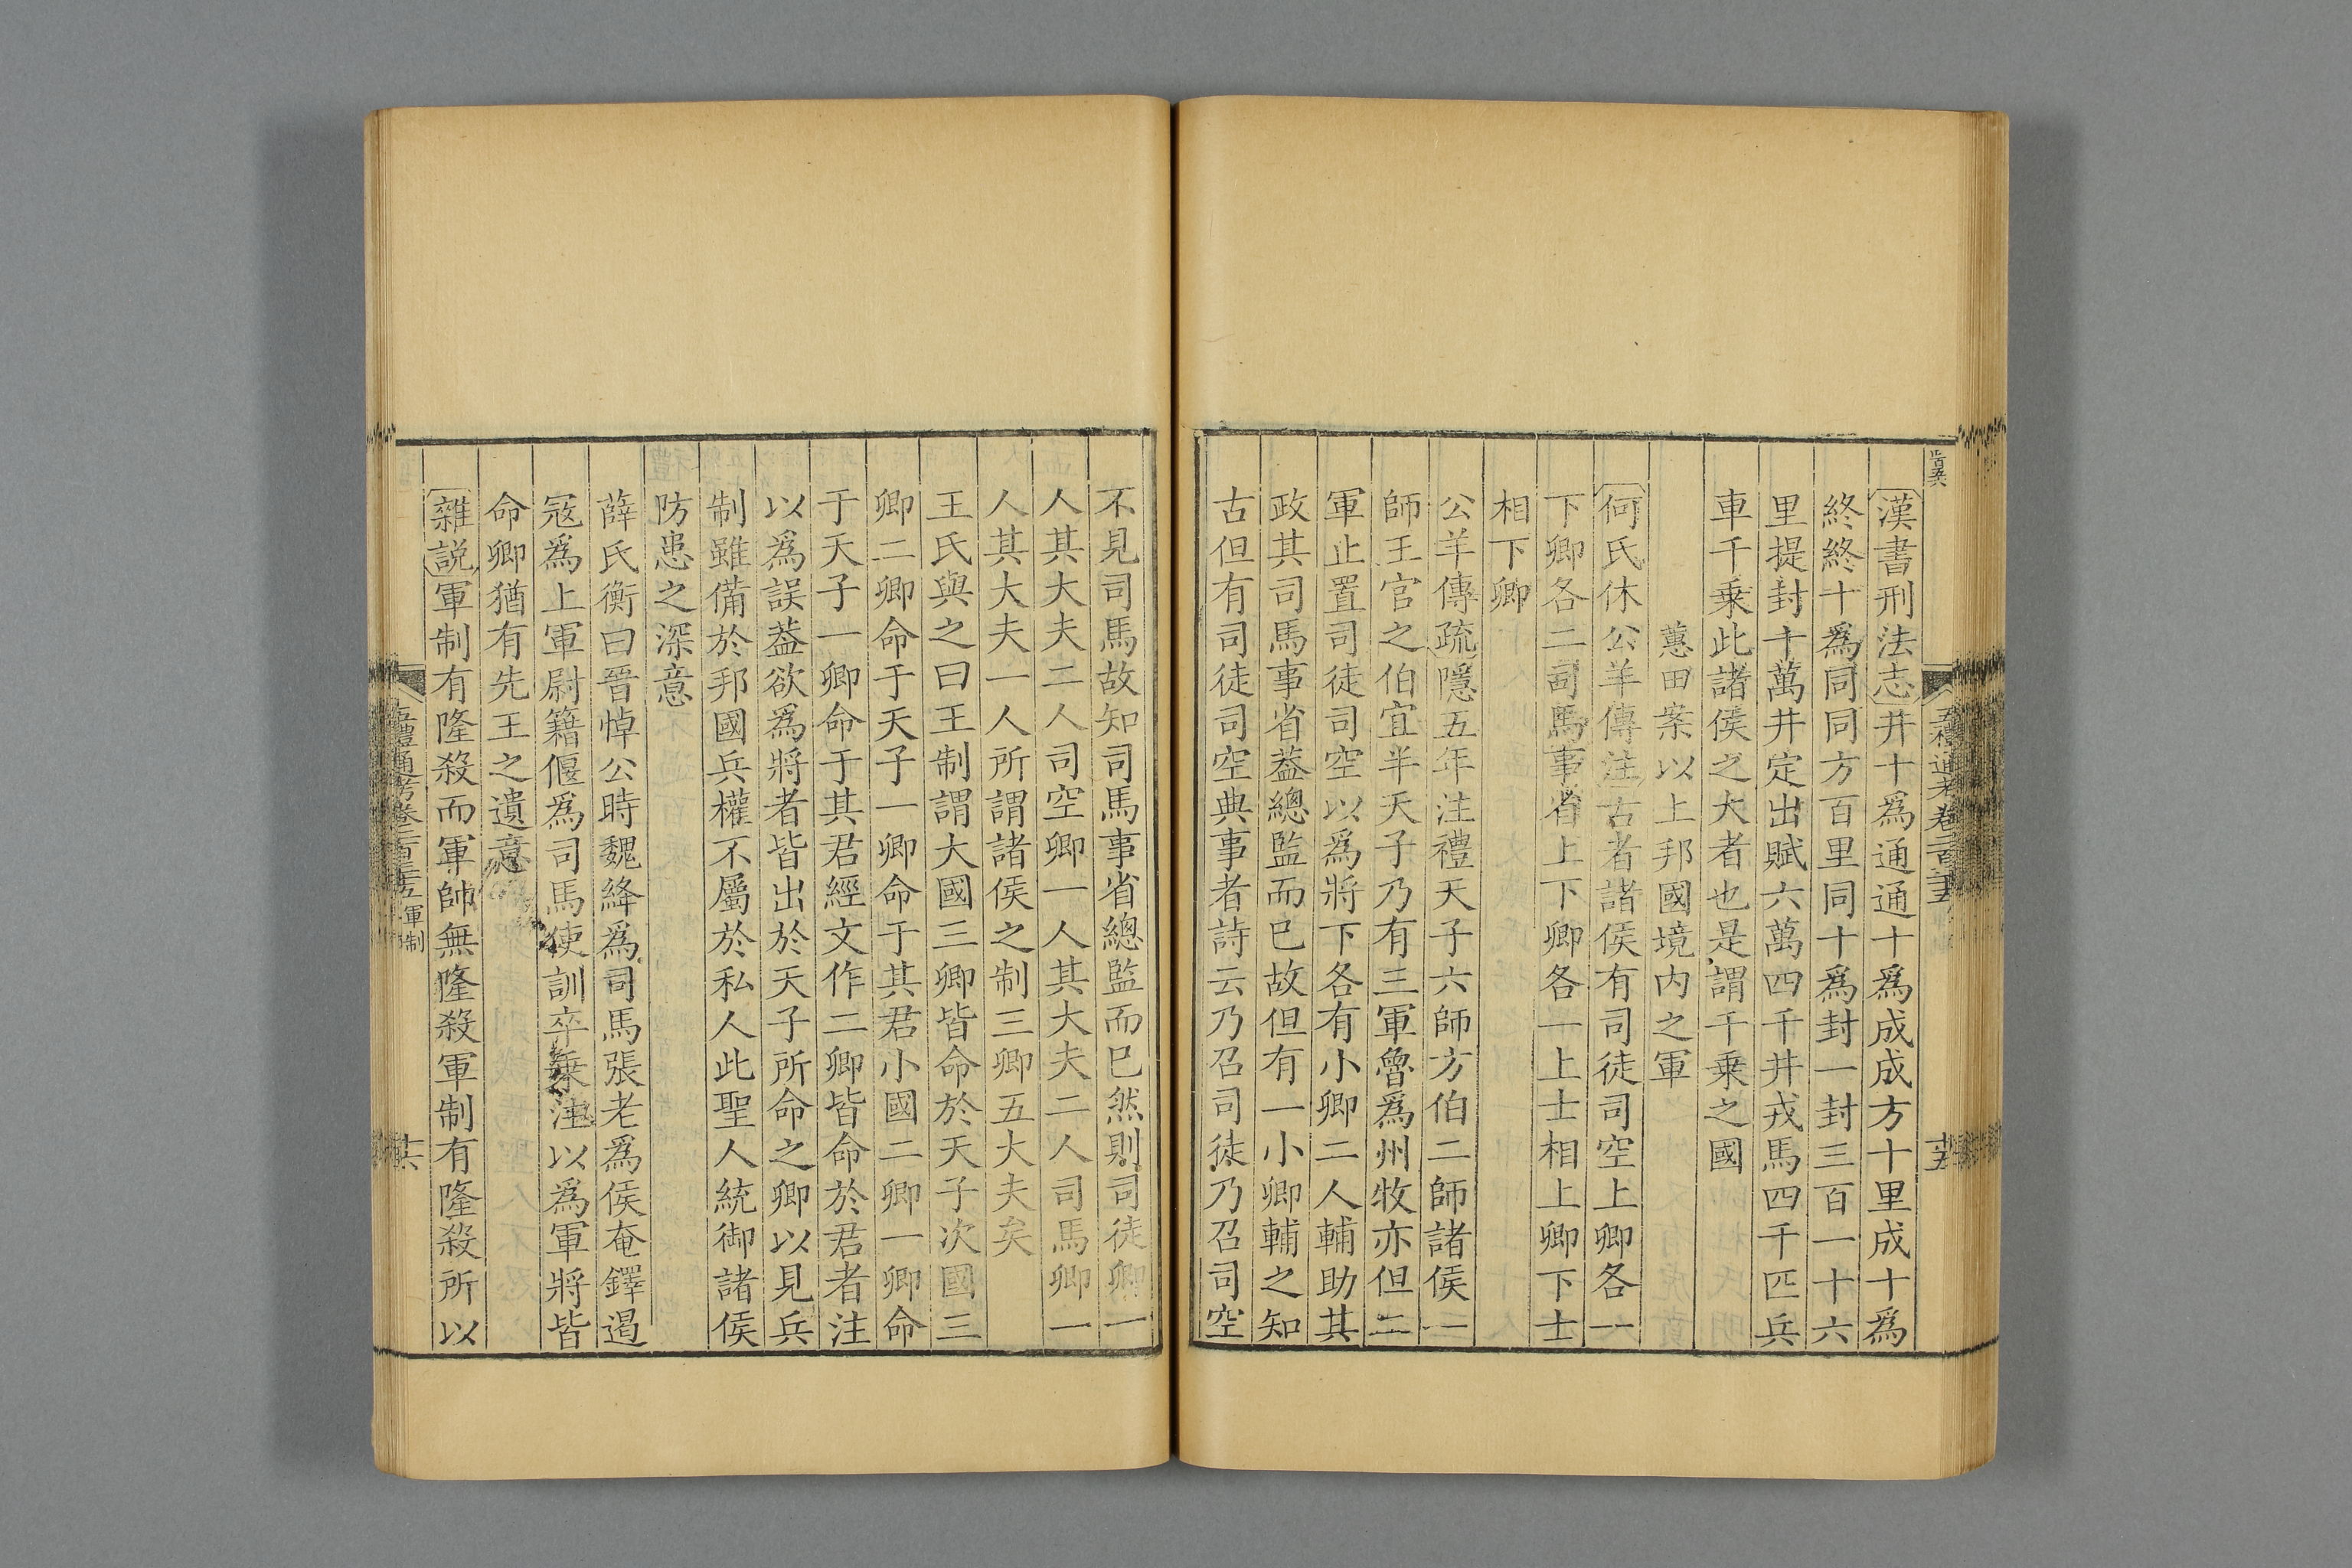 漢書刑法志井十爲通通十爲成成方十里成十爲
終終十爲同同方百里同十爲封一封三百一十六
里提封十萬井定出賦六萬四千井戎馬四千匹兵
車千乗此諸侯之大者也是謂千乗之國
蕙田案以上邦國境内之軍
何氏休公羊傳注古者諸侯有司徒司空上卿各一
下卿各二司馬事省上下卿各一上士相上卿下士
相下卿
公羊傳疏隱五年注禮天子六師方伯二師諸侯一
師王官之伯宜半天子乃有三軍魯爲州牧亦但二
軍止置司徒司空以爲將下各有小卿二人輔助其
政其司馬事省葢總監而已故但有一小卿輔之知
古但有司徒司空典事者詩云乃召司徒乃召司空
五禮通考卷二百三十五
十五
不見司馬故知司馬事省總監而已然則司徒卿一
人其大夫二人司空卿一人其大夫二人司馬卿一
人其大夫一人所謂諸侯之制三卿五大夫矣
王氏與之曰王制謂大國三卿皆命於天子次國三
卿二卿命于天子一卿命于其君小國二卿一卿命
于天子一卿命于其君經文作二卿皆命於君者注
以爲誤葢欲爲將者皆出於天子所命之卿以見兵
制雖備於邦國兵權不屬於私人此聖人統御諸侯
防患之深意
薛氏衡曰晉悼公時魏絳爲司馬張老爲侯奄鐸遏
寇爲上軍尉籍偃爲司馬使訓卒乗注以爲軍將皆
命卿猶有先王之遺意
雜説軍制有隆殺而軍帥無隆殺軍制有隆殺所以
五禮通考卷二百三十五 軍制
十六